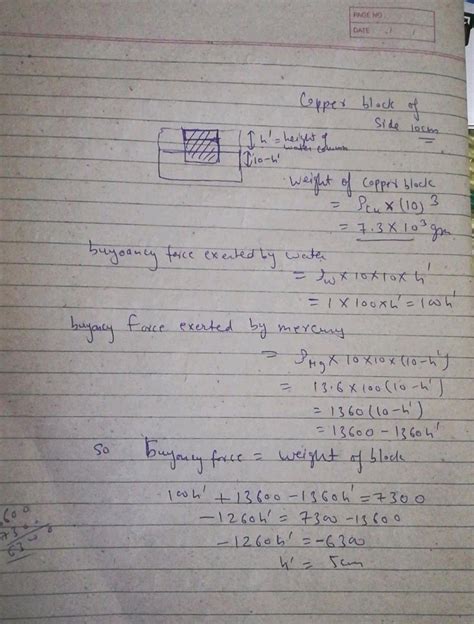 PAGE NO
DATE
Copper block of
side 10cm
h' = height of
water column
10-h'
weight of copper block
= ρcu × (10)³
= 7.3 × 10³ gm
buyoancy force exerted by water
= ρw × 10 × 10 × h'
= 1 × 100 × h' = 100h'
buyancy Force exerted by mercury
= ρHg × 10 × 10 × (10-h')
= 13.6 × 100 (10-h')
= 1360 (10-h')
= 13600 - 1360h'
So buyancy force = weight of block
100h' + 13600 - 1360h' = 7300
-1260h' = 7300 - 13600
-1260h' = -6300
h' = 5cm